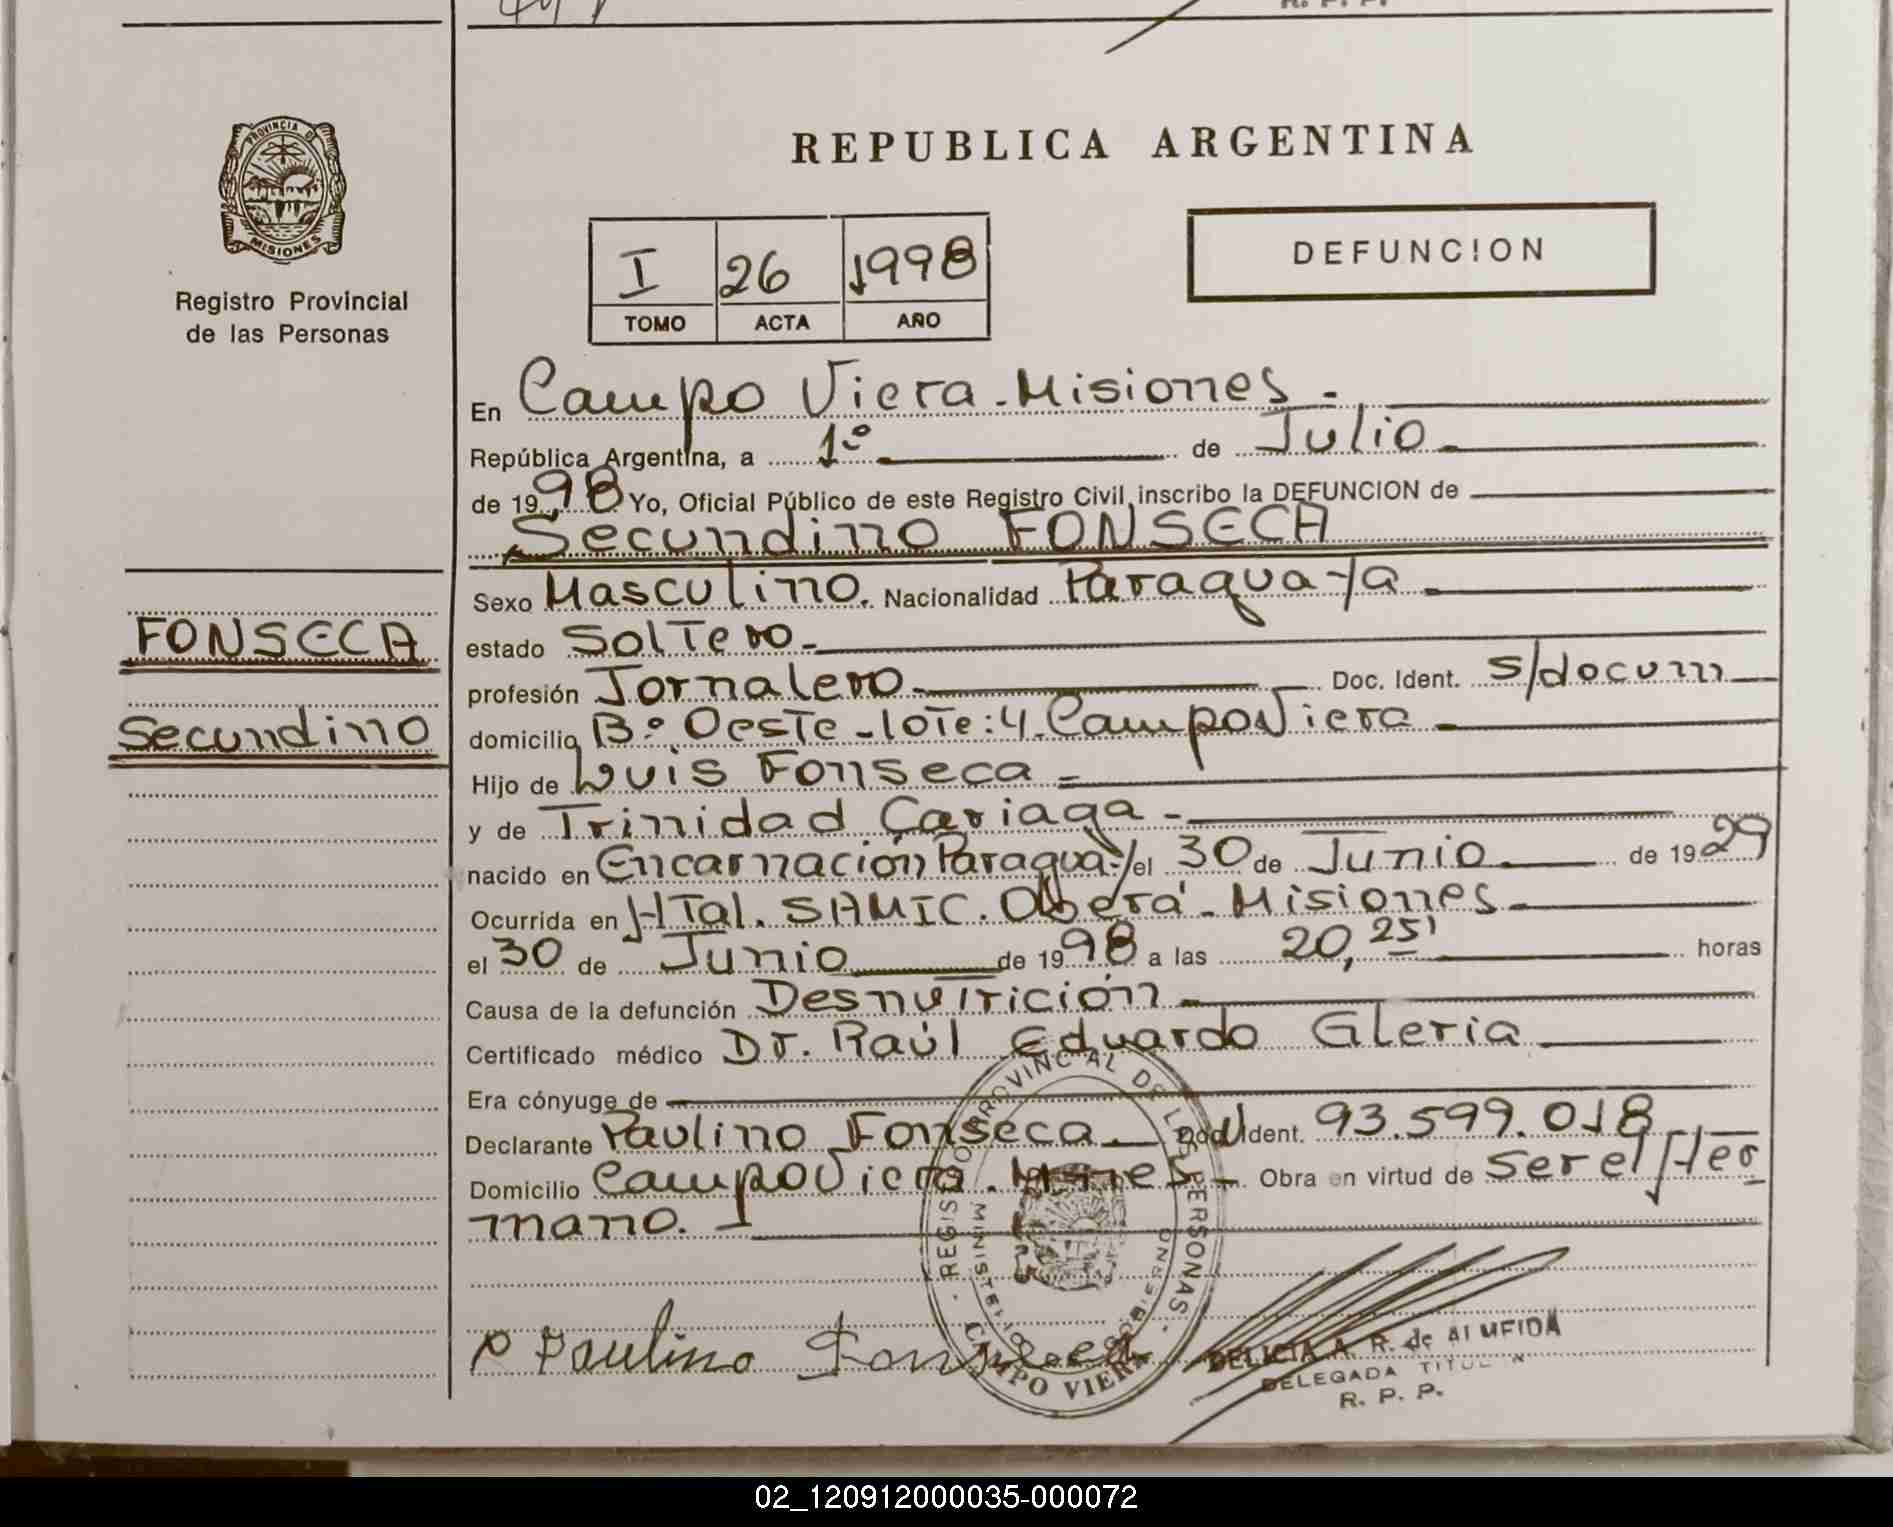 R. P. P.
PROVINCIA DE
MISIONES
Registro Provincial
de las Personas
REPUBLICA ARGENTINA
I 26 1998
TOMO ACTA AÑO
DEFUNCION
En Campo Viera - Misiones -
República Argentina, a 1º de Julio
de 1998 Yo, Oficial Público de este Registro Civil, inscribo la DEFUNCION de
Secundino FONSECA
Sexo Masculino. Nacionalidad Paraguaya
estado Soltero -
profesión Jornalero Doc. Ident. s/docum
domicilio Bº Oeste - lote: 4. Campo Viera
Hijo de Luis Fonseca
y de Trinidad Cariaga -
nacido en Encarnación Paraguay el 30 de Junio de 1929
Ocurrida en HTal. SAMIC. Oberá - Misiones -
el 30 de Junio de 1998 a las 20,25' horas
Causa de la defunción Desnutrición
Certificado médico Dr. Raúl Eduardo Gleria
Era cónyuge de
Declarante Paulino Fonseca. Doc. Ident. 93.599.018
Domicilio Campo Viera. Mnes - Obra en virtud de ser el Her
mano.
FONSECA
Secundino
REGISTRO PROVINCIAL DE LAS PERSONAS
MINISTERIO GOBIERNO
CAMPO VIERA
Paulino Fonseca
DELICIA A. R. de ALMEIDA
DELEGADA TITULAR
R. P. P.
02_120912000035-000072